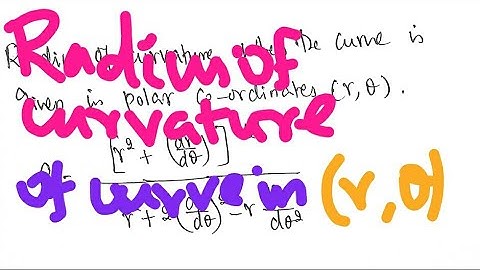 Radius of
curvature
of curve in (r, θ)
curvature when the curve is
given in polar co-ordinates (r, θ).
[r² + (dr/dθ)²]
r² + 2(dr/dθ)² - r d²r/dθ²